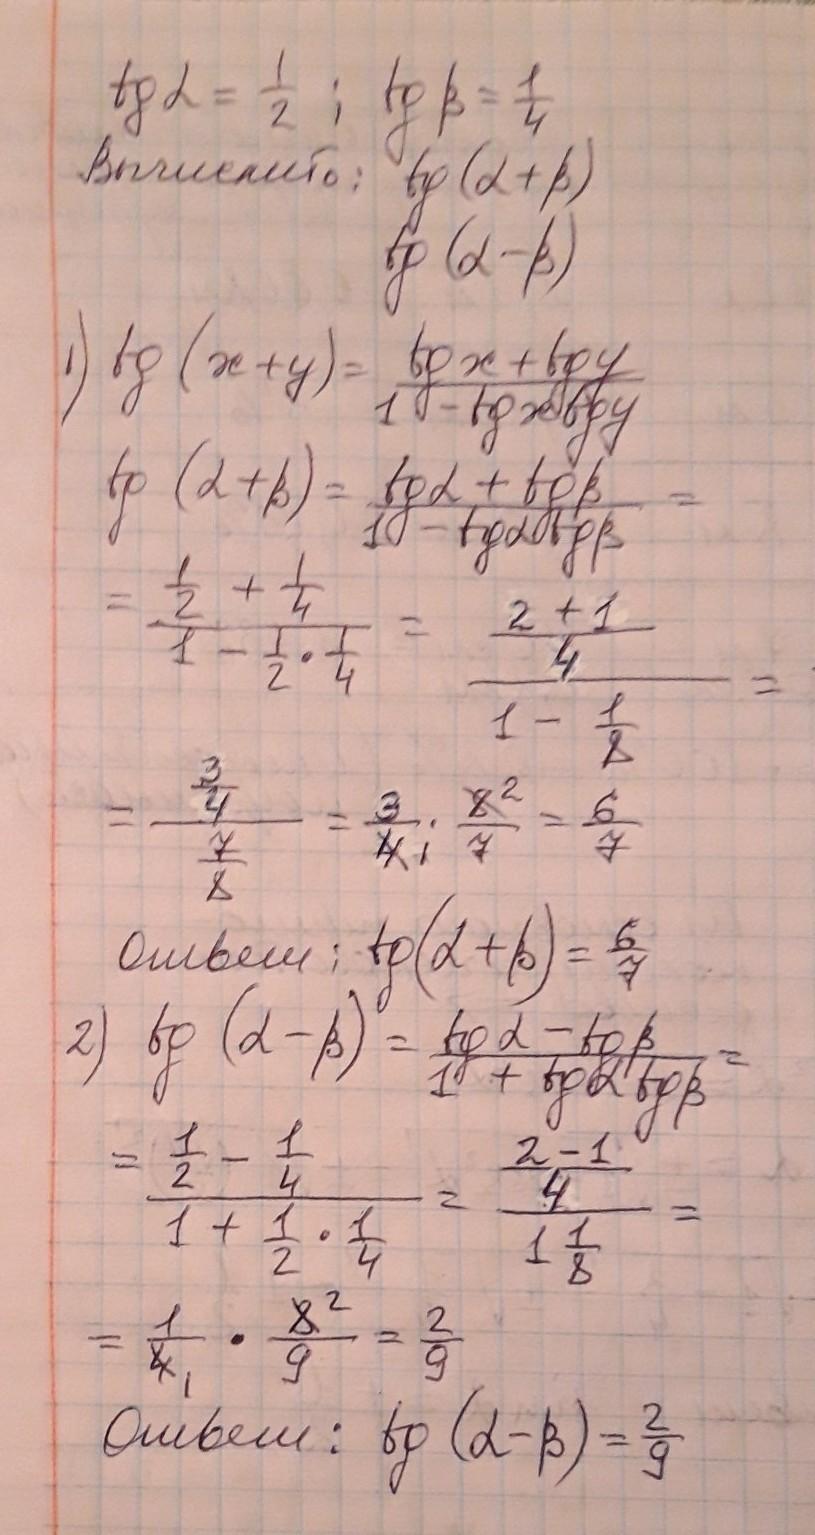 tg α = 1/2 ; tg β = 1/4
Вычислить: tg (α + β)
tg (α − β)
1) tg (x + y) = (tg x + tg y)/(1 − tg x tg y)
tg (α + β) = (tg α + tg β)/(1 − tg α tg β) =
= (1/2 + 1/4)/(1 − 1/2 · 1/4) = ((2 + 1)/4)/(1 − 1/8) =
= (3/4)/(7/8) = 3/4 1 · 8 2/7 = 6/7
Ответ: tg (α + β) = 6/7
2) tg (α − β) = (tg α − tg β)/(1 + tg α tg β) =
= (1/2 − 1/4)/(1 + 1/2 · 1/4) = ((2 − 1)/4)/(1 1/8) =
= 1/4 1 · 8 2/9 = 2/9
Ответ: tg (α − β) = 2/9